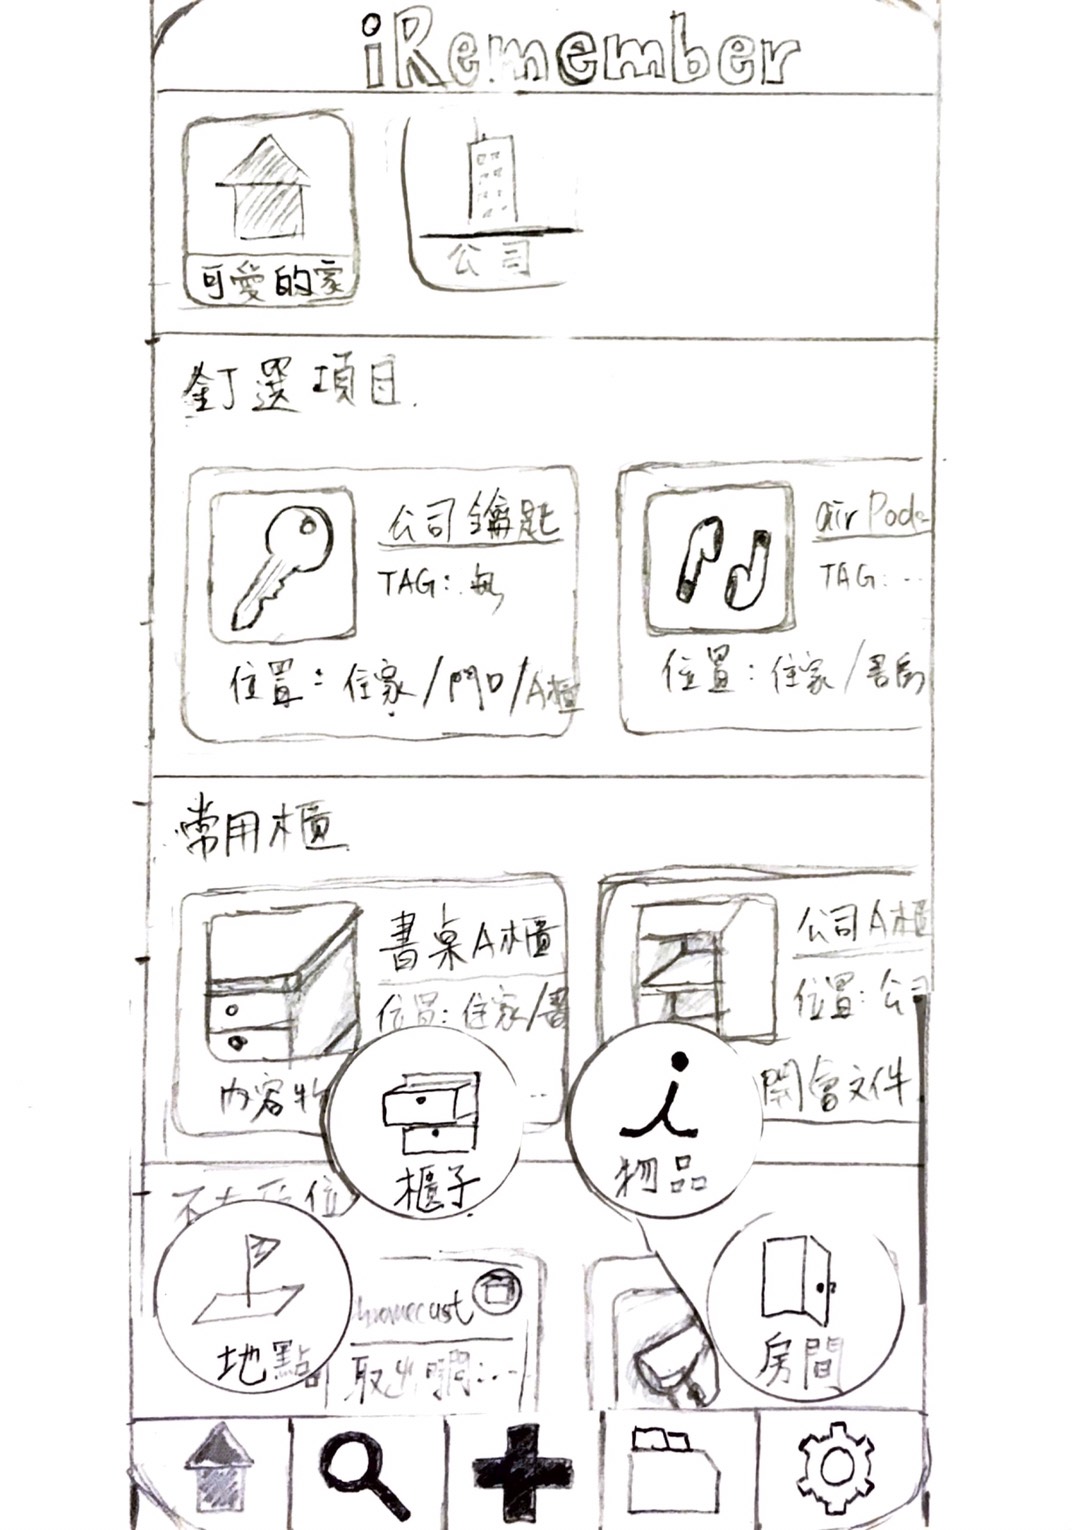 iRemember
可愛的家
公司
釘選項目
公司鑰匙
TAG: 無
位置：住家/門口/A櫃
airPods
TAG: ...
位置：住家/書房
常用櫃
書桌A櫃
位置：住家/書
內容物
公司A櫃
位置：公司
開會文件
櫃子
物品
不在
位
地點
取出時間:...
房間